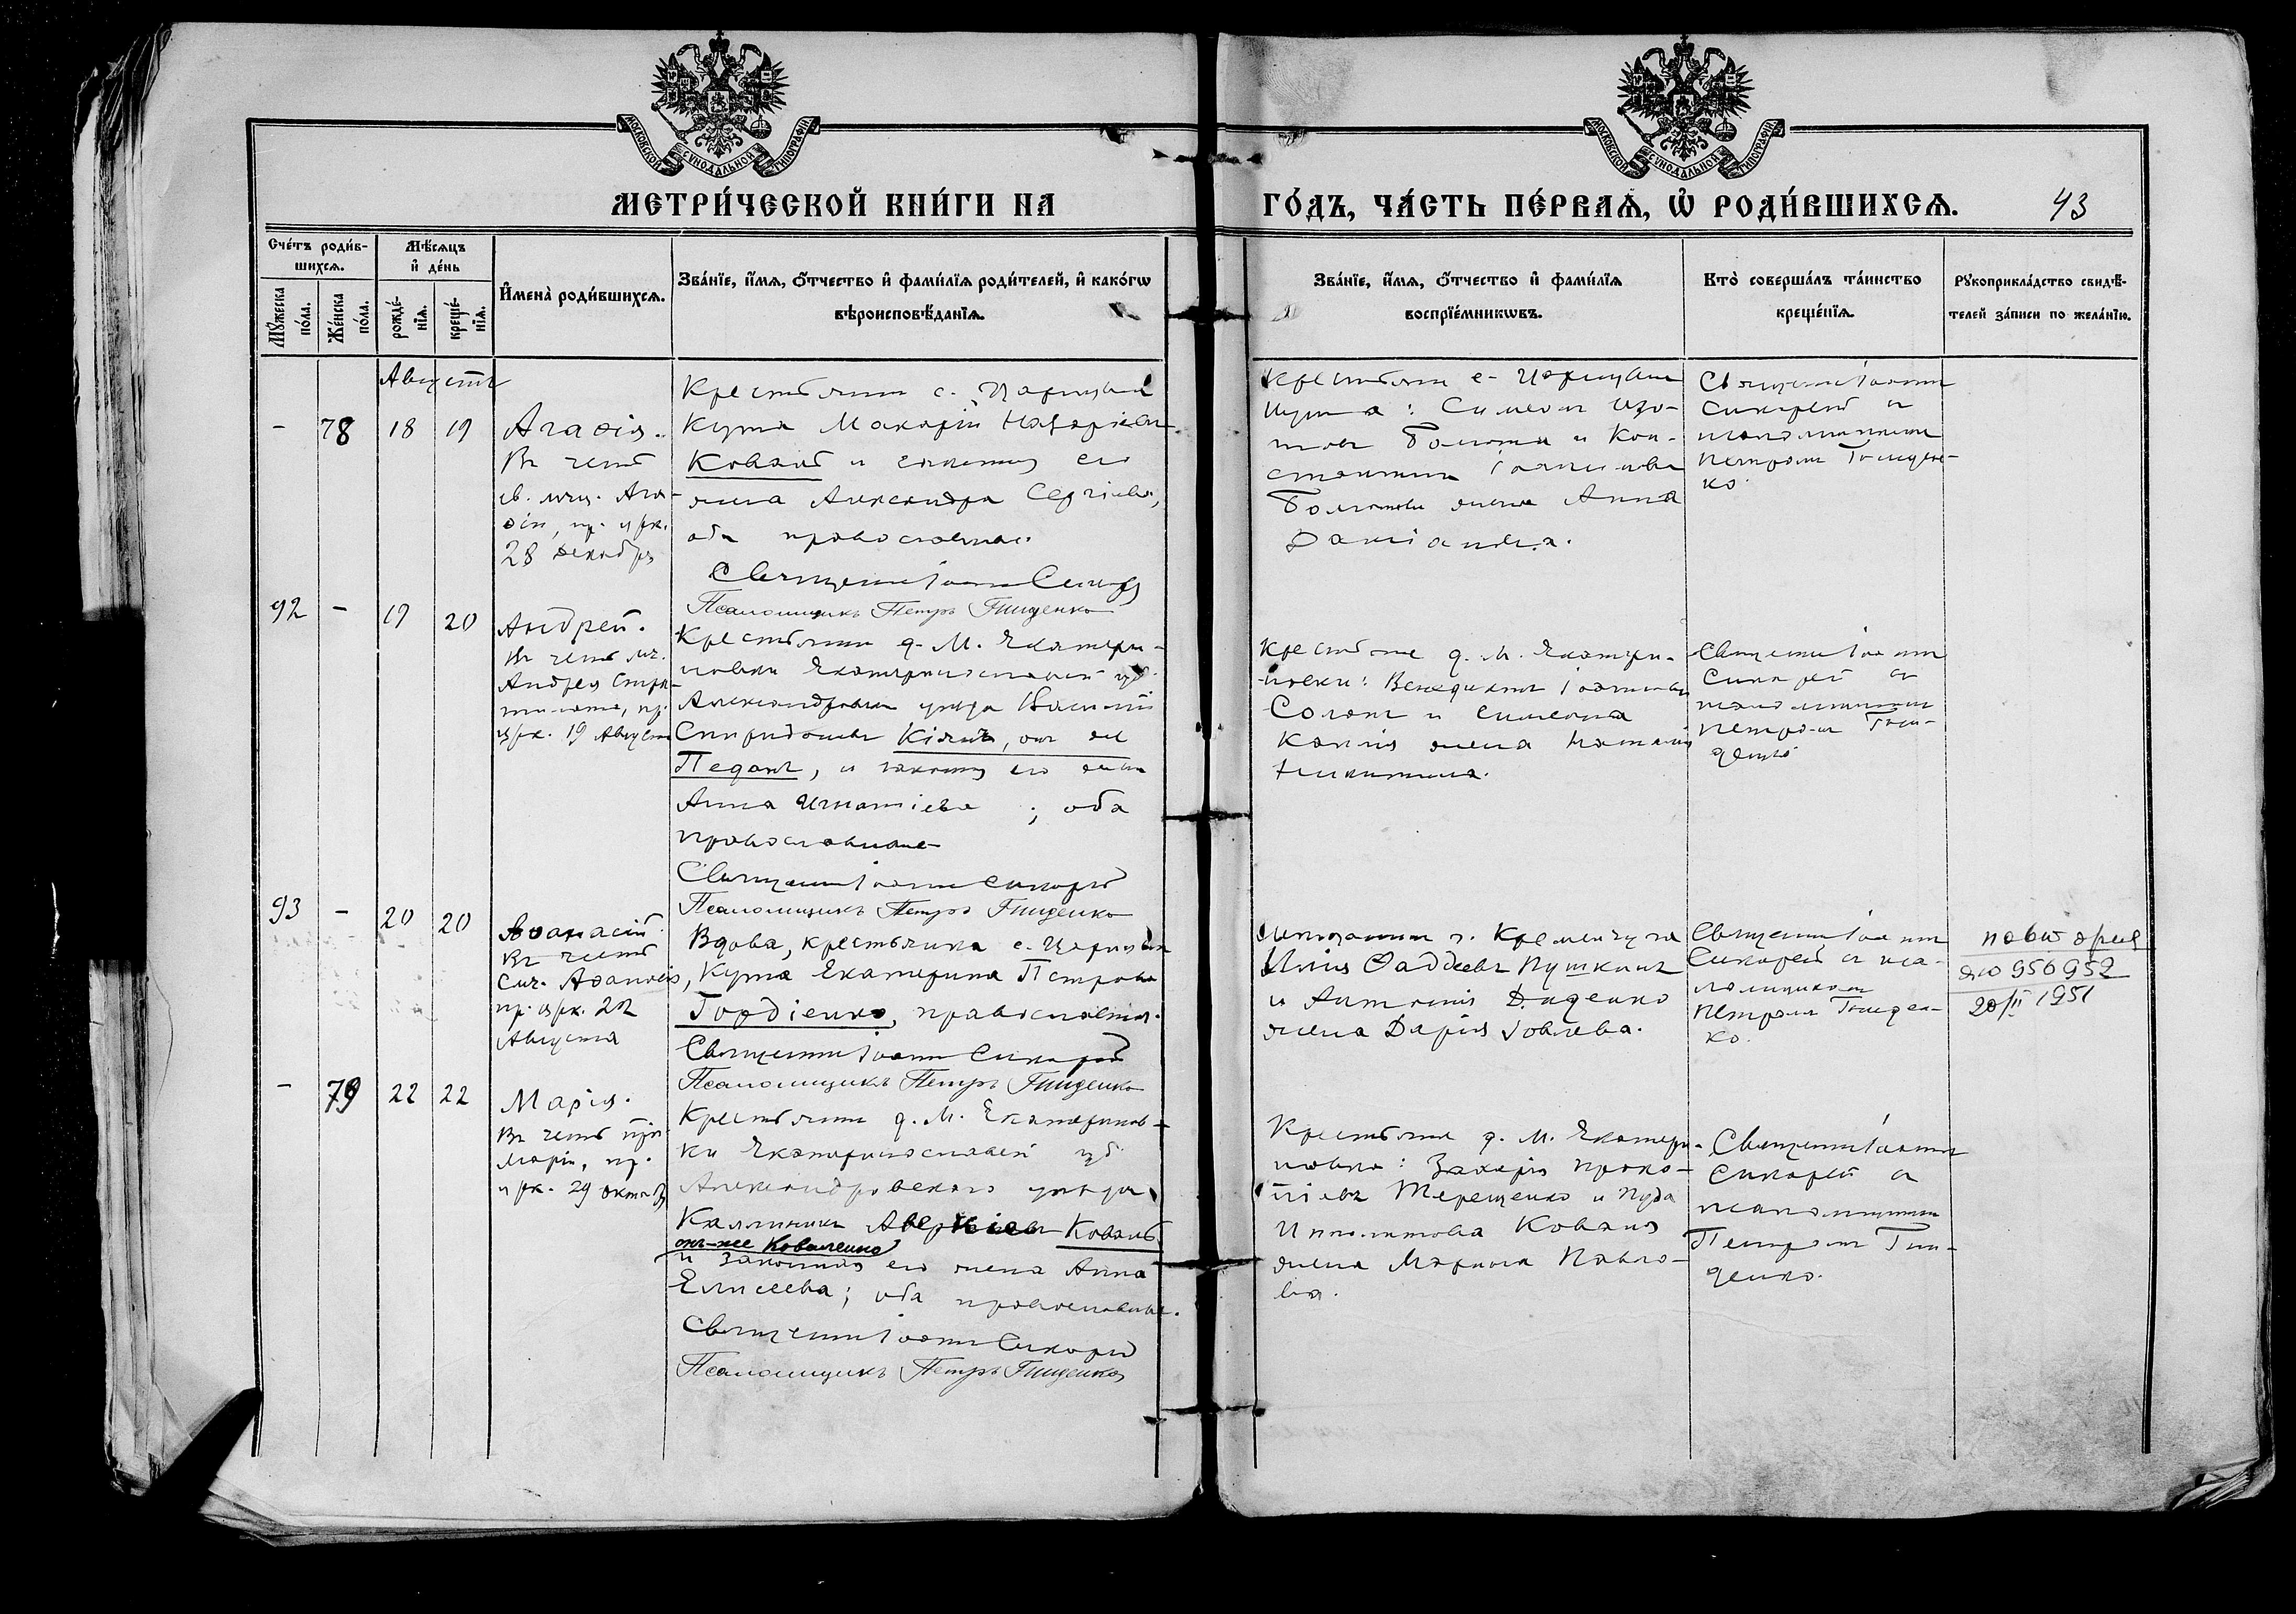 МОСКОВСКОЙ СѴНОДАЛЬНОЙ ТИПОГРАФІИ
МОСКОВСКОЙ СѴНОДАЛЬНОЙ ТИПОГРАФІИ
МЕТРИ́ЧЕСКОЙ КНИ́ГИ НА
ГО́ДЪ, ЧА́СТЬ ПЕ́РВАѦ, Ѽ РОДИ́ВШИХСѦ.
43
Сче́тъ роди́в-
шихсѧ.
Мѣ́сѧцъ
и҆ де́нь
Мꙋ́жеска
по́ла.
Же́нска
по́ла.
рожде́-
нїѧ.
креще́-
нїѧ.
И҆мена̀ роди́вшихсѧ.
Зва́нїе, и҆́мѧ, ѻ҆́тчество и҆ фами́лїѧ роди́телей, и҆ како́гѡ
вѣроисповѣ́данїѧ.
Зва́нїе, и҆́мѧ, ѻ҆́тчество и҆ фами́лїѧ
воспрїе́мникѡвъ.
Кто̀ соверша́лъ та́инство
креще́нїѧ.
Рꙋкоприкла́дство свидѣ́-
телей за́писи по жела́нїю.
Августъ
- 78 18 19
Агаѳія.
Въ честь
св. мчц. Ага-
ѳіи, пр. црк.
28 декабря
Крестьянинъ с. Царицына
Кута Макарій Назаріевъ
Коваль и законная его
жена Александра Сергіева,
оба православные.
Священникъ Іоаннъ
Псаломщикъ Петръ Гниденко
Крестьяне с. Царицына
Кута: Симеонъ Изо-
товъ и Кон-
стантина Іоаннова
жена Анна
Даміанова.
Священникъ Іоаннъ
съ
псаломщикомъ
Петромъ Гниден-
ко.
92 - 19 20
Андрей.
Въ честь мч.
Андрея Стра-
тилата, пр.
црк. 19 Августа
Крестьянинъ д. М. Екатери-
новки Екатеринославской губ.
Александровскаго уѣзда Василій
Спиридоновъ Кіяшъ, онъ же
Педанъ, и законная его жена
Анна Игнатіева ; оба
православные
Священникъ Іоаннъ
Псаломщикъ Петръ Гниденко
Крестьяне д. М. Екатери-
новки: Венедиктъ Іоанновъ
и Симеона
жена Наталія
Никитина.
Священникъ Іоаннъ
съ
псаломщикомъ
Петромъ Гни-
денко
93 - 20 20
Аѳанасій.
Въ честь
Смч. Аѳанасія,
пр. црк. 22
Августа
Вдова, крестьянка с. Царицына
Кута Екатерина Петрова
Гордіенко, православная.
Священникъ Іоаннъ
Псаломщикъ Петръ Гниденко
Мѣщанинъ г. Кременчуга
Илія Ѳаддеевъ Пушкинъ
и Антонія Диденко
жена Дарія Іовлева.
Священникъ Іоаннъ
съ пса-
ломщикомъ
Петромъ Гниден-
ко.
956952
20/II 1951
- 79 22 22
Марія.
Въ честь прп.
Маріи, пр.
црк. 29 октября
Крестьянинъ д. М. Екатеринов-
ки Екатеринославской губ.
Александровскаго уѣзда
Каллиникъ Аверкіевъ Коваль
онъ-же Коваленко
и законная его жена Анна
Елисеева; оба православные.
Священникъ Іоаннъ
Псаломщикъ Петръ Гниденко
Крестьяне д. М. Екатери-
новки: Захарія Проко-
піевъ Терещенко и Иуда
Ипполитова Коваля
жена Марина Павло-
ва.
Священникъ Іоаннъ
съ
псаломщикомъ
Петромъ Гни-
денко.